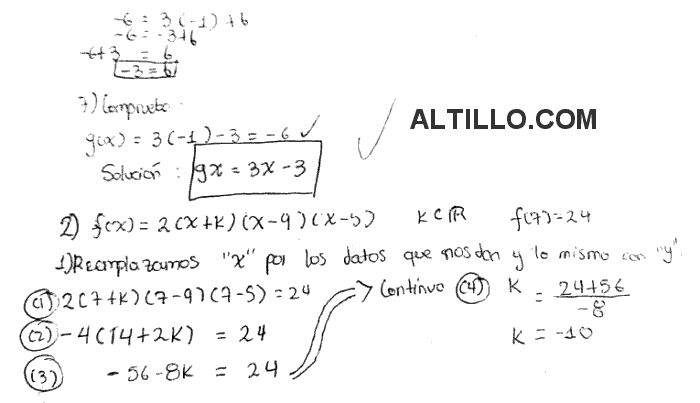 -6 = 3(-1)+b
-6 = -3+b
-6+3 = b
-3 = b
7) Compruebo.
g(x) = 3(-1)-3 = -6 ✓
ALTILLO.COM
Solución : gx = 3x-3
2) f(x) = 2(x+k)(x-9)(x-5) K∈ℝ f(7)=24
1) Reemplazamos "x" por los datos que nos dan y lo mismo con "y".
(1) 2(7+k)(7-9)(7-5)=24 → Continuo (4) K = 24+56 / -8
(2) -4(14+2k) = 24
K = -10
(3) -56-8k = 24